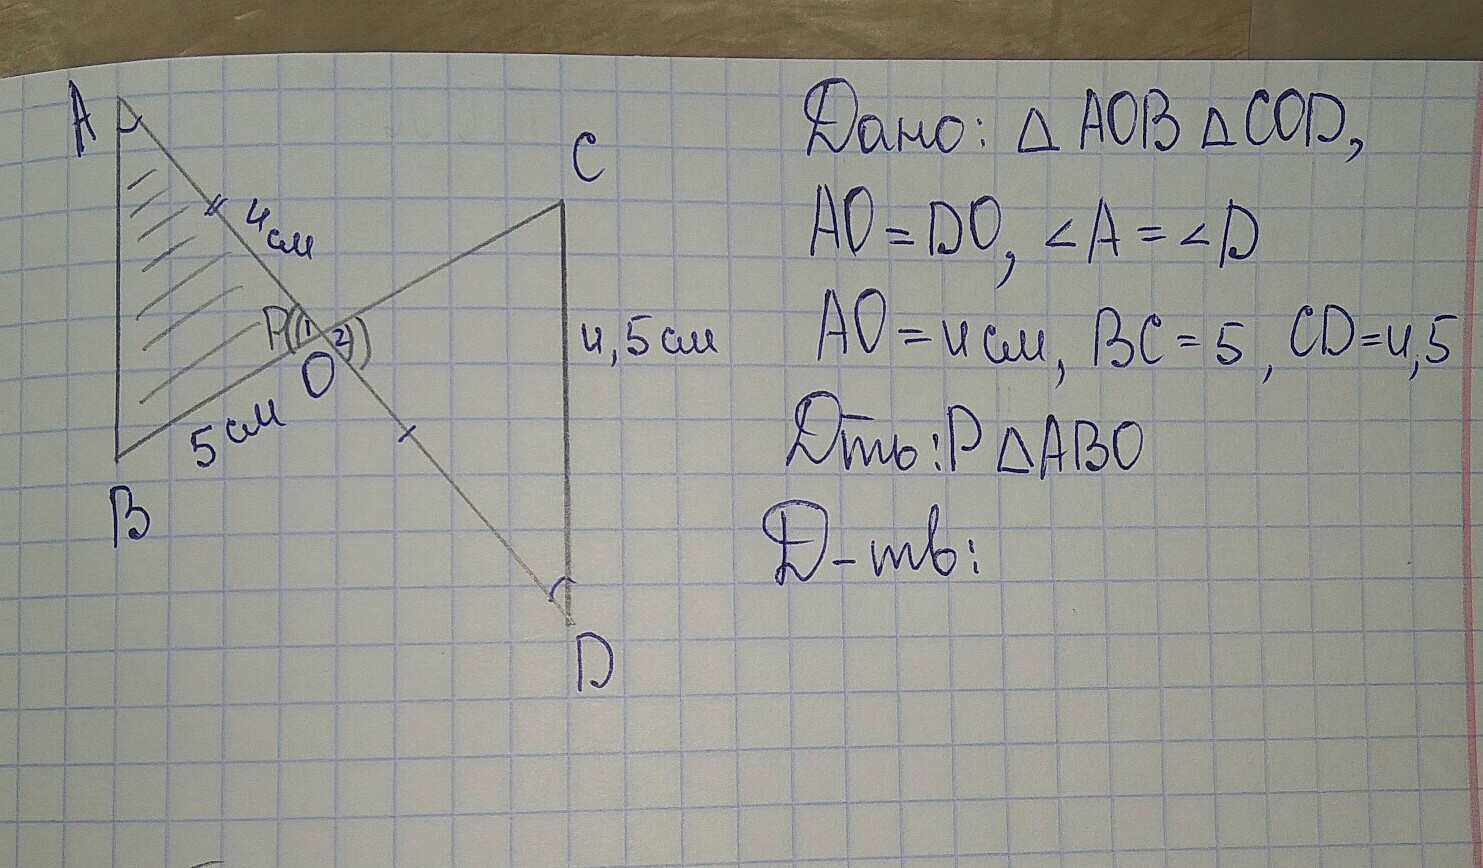 A
C
4 см
P
1
2
O
4,5 см
5 см
B
D
Дано: △ AOB △ COD,
AO = DO, ∠A = ∠D
AO = 4 см, BC = 5, CD = 4,5
Дть: P △ ABO
Д-тв: